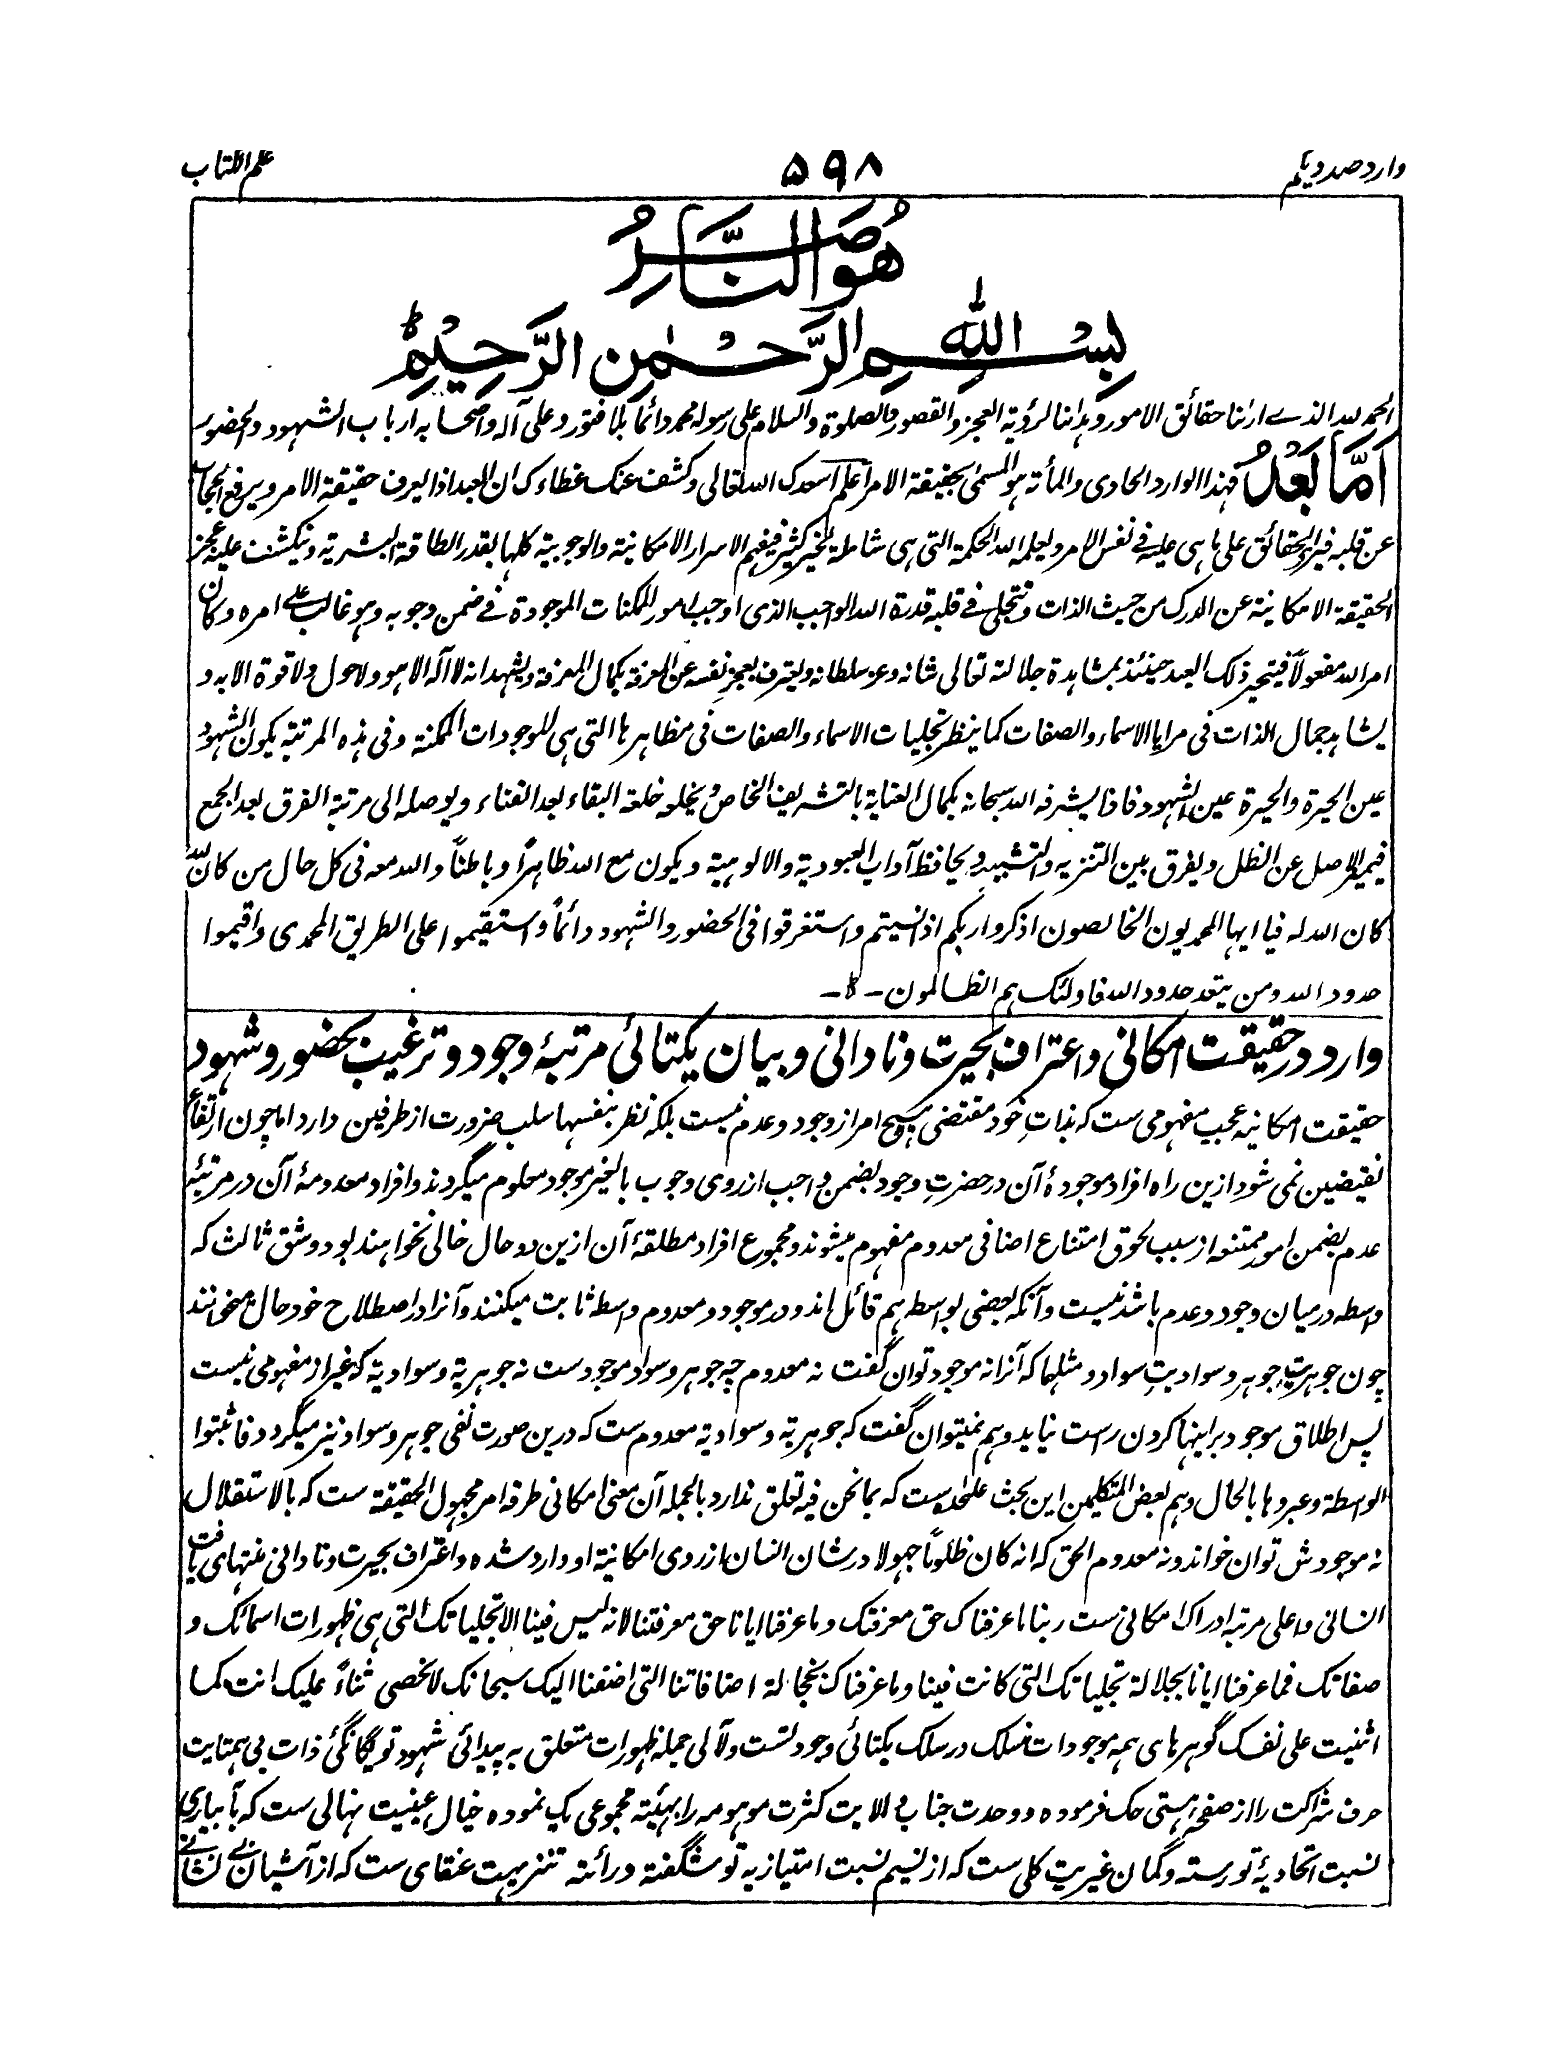 وارد صد و یکم
۵۹۸
علم الکتاب
هو الناصر
بسم الله الرحمن الرحیم ط
الحمد لله الذے ارٰنا حقائق الامور وہدٰنا لرؤیة العجز والقصور والصلوة والسلام علی رسوله محمد دائماً بلا فتور وعلی آله واصحابه ارباب الشہود والحضور
اَمَّا بَعْدُ فہذا الوارد الحادی والمأته ہو المسمّٰی بحقیقة الامر اعلم اسعدک الله تعالی وکشف عنک غطاءک ان العبد اذا یعرف حقیقة الامر ویرفع الحجاب
عن قلبه فیری الحقائق علی ما ہی علیه فے نفس الامر ویعلمه الله الحکمة التی ہی شاملة لخیر کثیر فیفہم الاسرار الامکانیة والوجوبیة کلہا بقدر الطاقة البشریة وینکشف علیه عجز
الحقیقة الامکانیة عن الدرک من حیث الذات وتتجلی فے قلبه قدرة الله الواجب الذی اوجب امور الممکنات الموجودة فے ضمن وجوبه وہو غالب علے امره وکان
امر الله مفعولاً فیتحیر ذلک العبد حینئذ بمشاہدة جلالته تعالی شانه وعز سلطانه ویعترف بعجز نفسه عن المعرفة بکمال المعرفة ویشہد انه لا اله الا ہو ولا حول ولا قوة الا به و
یشاہد جمال الذات فی مرایا الاسماء والصفات کما ینظر تجلیات الاسماء والصفات فی مظاہرہا التی ہی للموجودات الممکنة وفی ہذه المرتبة یکون الشہود
عین الحیرة والحیرة عین الشہود فاذا یشرفه الله سبحانه بکمال العنایة بالتشریف الخاص ویخلعه خلعة البقاء بعد الفناء ویوصله الی مرتبة الفرق بعد الجمع
فیمیز الاصل عن الظل ویفرق بین التنزیه والتشبیه ویحافظ آداب العبودیة والالوہیة ویکون مع الله ظاہراً وباطناً والله معه فی کل حال من کان لله
کان الله له فیا ایہا المحمدیون الخالصون اذکروا ربکم اذا نسیتم واستغرقوا فی الحضور والشہود دائماً واستقیموا علی الطریق المحمدی واقیموا
حدود الله ومن یتعد حدود الله فاولئک ہم الظالمون - ط -
وارد در حقیقت امکانی و اعتراف بحیرت و نادانی و بیان یکتائی مرتبۂ وجود و ترغیب بحضور و شہود
حقیقت امکانیه عجب مفہومی ست که بذات خود مقتضی ہیچ امر از وجود و عدم نیست بلکه نظر بنفسہا سلب ضرورت از طرفین دارد اما چون ارتفاع
نقیضین نمی شود ازین راه افراد موجودۂ آن در حضرت وجود بضمن واجب از روی وجوب بالغیر موجود معلوم میگردند و افراد معدومۂ آن در مرتبۂ
عدم بضمن امور ممتنعه از سبب لحوق امتناع اضافی معدوم مفہوم میشوند و مجموع افراد مطلقۂ آن ازین دو حال خالی نخواہند بود و شق ثالث که
واسطه درمیان وجود و عدم باشد نیست و آنکه بعضی بواسطه ہم قائل اند و در موجود و معدوم واسطه ثابت میکنند و آنرا در اصطلاح خود حال میخوانند
چون جوہریت جوہر و سوادیت سواد و مثلہما که آنرا نه موجود توان گفت نه معدوم چه جوہر و سواد موجودست نه جوہریة و سوادیة که غیر از مفہومی نیست
پس اطلاق موجود بر اینہا کردن راست نیاید و ہم نمیتوان گفت که جوہریة و سوادیة معدوم ست که درین صورت نفی جوہر و سواد نیز میگردد فاثبتوا
الواسطة وعبروہا بالحال وہم بعض المتکلمین این بحث علٰحده ست که بما نحن فیه تعلق ندارد بالجمله آن معنی امکانی طرفه امر مجہول الحقیقة ست که بالاستقلال
نه موجودش توان خواند و نه معدوم الحق که انه کان ظلوماً جہولا در شان انسان از روی امکانیة او وارد شده و اعتراف بحیرت و نادانی منتہای یافت
انسانی و اعلی مرتبه ادراک امکانی ست ربنا ما عرفناک حق معرفتک وما عرفنا ایانا حق معرفتنا لانه لیس فینا الا تجلیاتک التی ہی ظہورات اسمائک و
صفاتک فما عرفنا ایانا بجلالة تجلیاتک التی کانت فینا وما عرفناک بخجالة اضافاتنا التی اضفنا الیک سبحانک لا نحصی ثناءً علیک انت کما
اثنیت علی نفسک گوہرہای ہمه موجودات منسلک در سلک یکتائی وجود تست و لآلی جمله ظہورات متعلق به پیدائی شہود تو یگانگئ ذات بی ہمتایت
حرف شراکت را از صفحۂ ہستی حک فرموده و وحدت جناب والایت کثرت موہومه را بہیئة مجموعی یک نموده خیال عینیت نہالی ست که بآبیاری
نسبت اتحادیۂ تو رسته و گمان غیریت گلی ست که از نسیم نسبت امتیازیۂ تو شگفته ذرائته تنزیہت عنقای ست که از آشیان بے نشانے